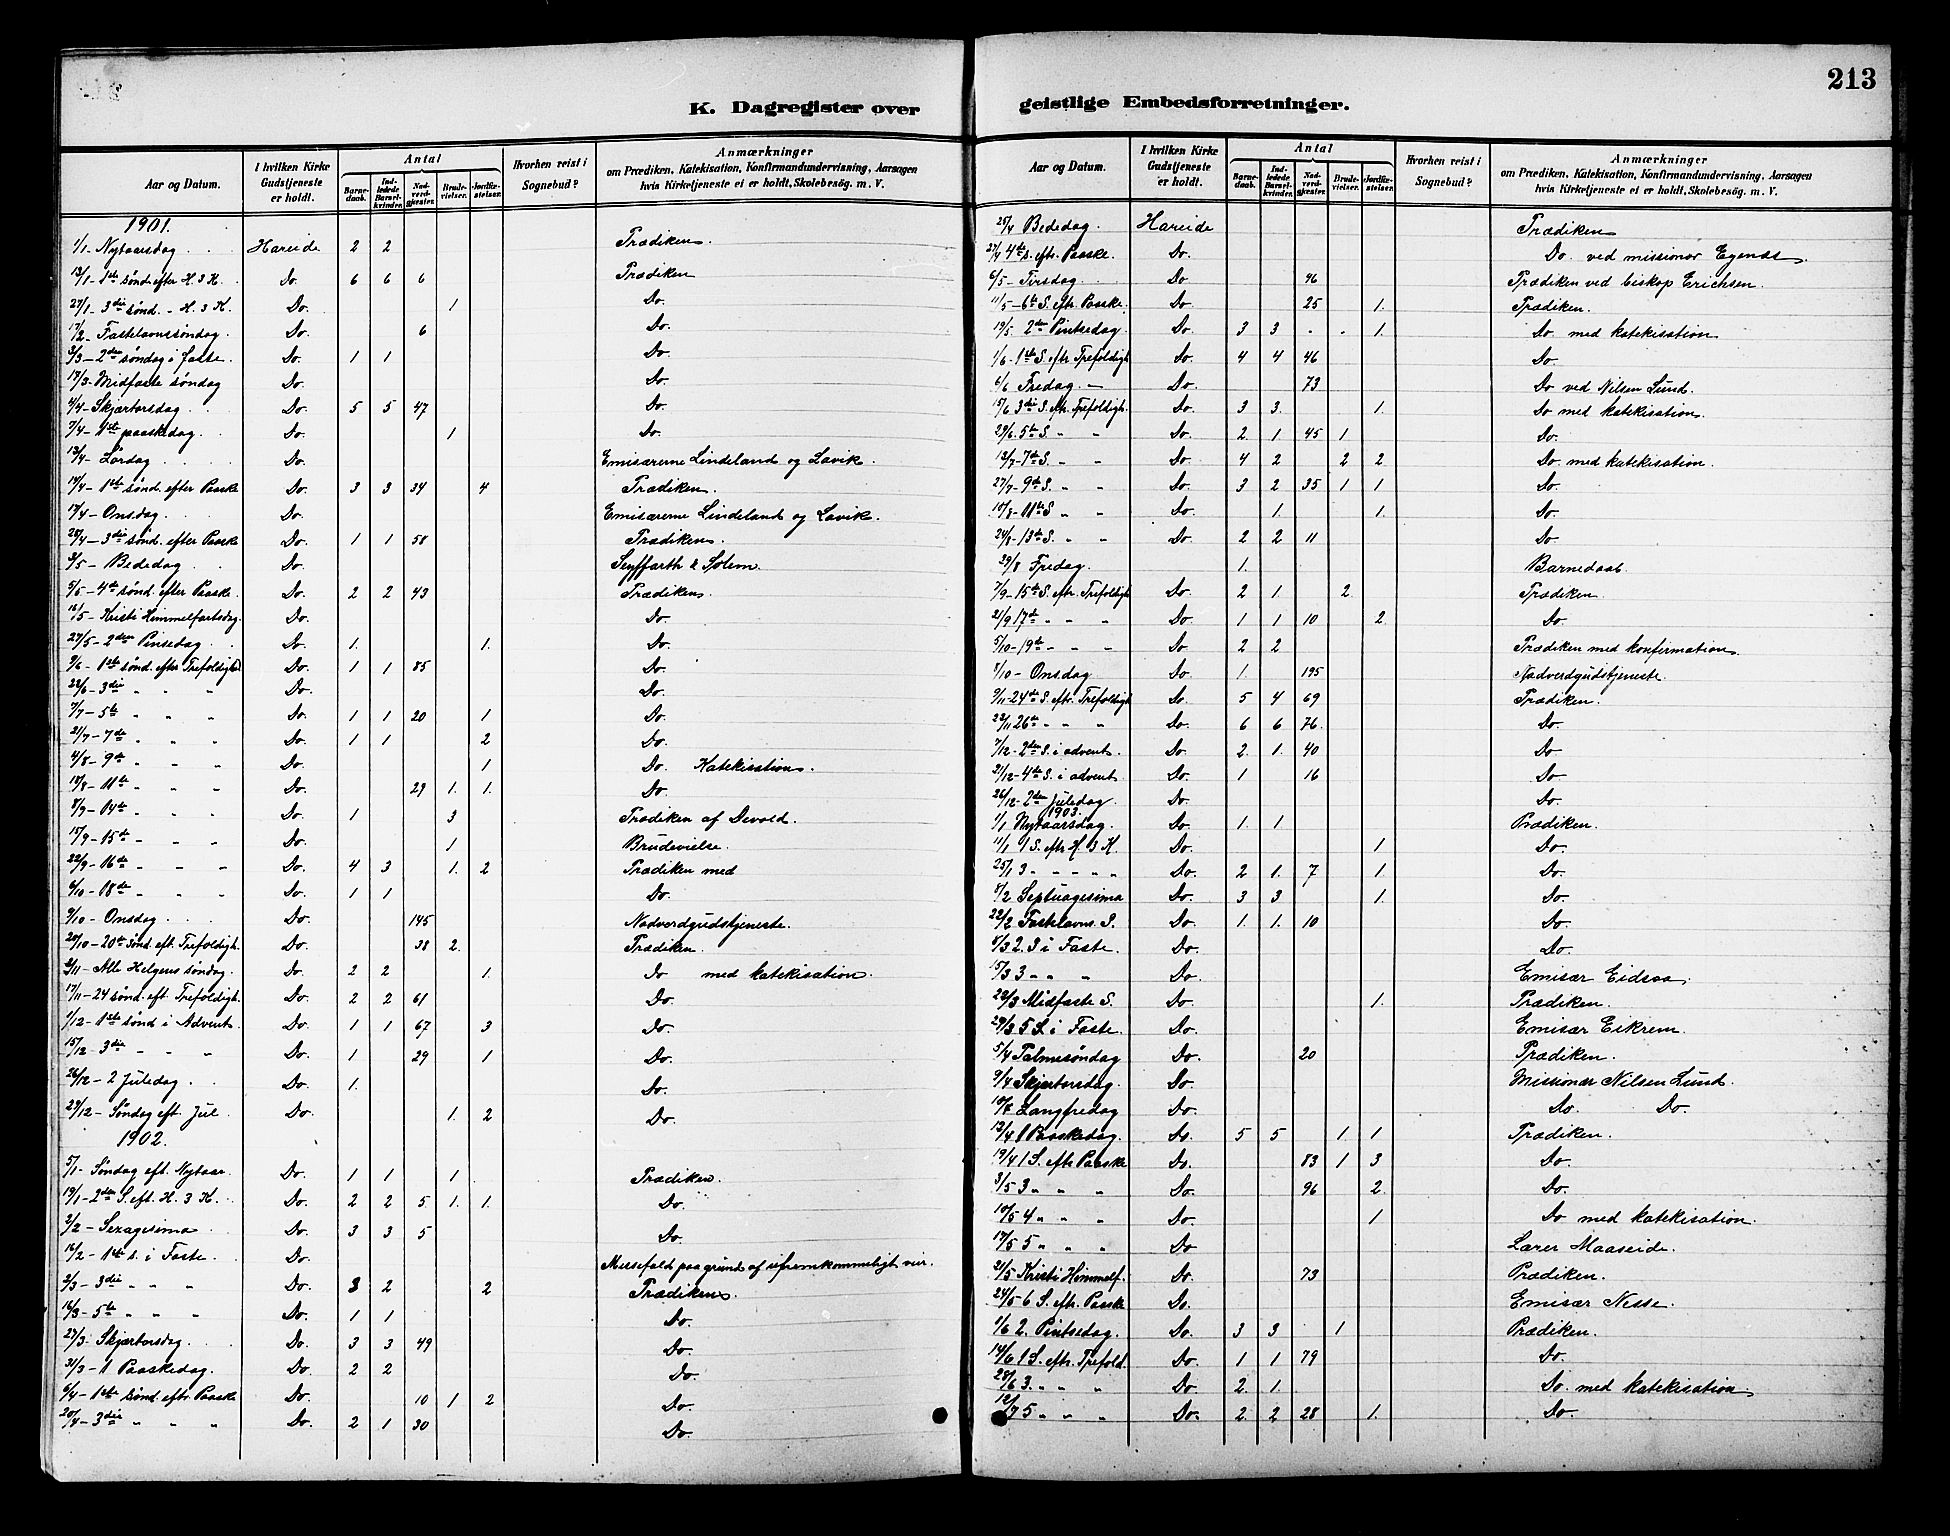 213
K. Dagregister over geistlige Embedsforretninger.
Aar og Datum. I hvilken Kirke Gudstjeneste er holdt. Antal Barnedaab. Indledede Barselkvinder. Nadverdgjester. Brudevielser. Jordfæstelser. Hvorhen reist i Sognebud? Anmærkninger om Prædiken, Katekisation, Konfirmandundervisning, Aarsagen hvis Kirketjeneste ei er holdt, Skolebesøg. m. V.
1901.
1/1- Nytaarsdag Hareide 2 2 Prædiken.
13/1- 1ste sønd. efter H. 3 K. Do. 6 6 6 Prædiken
27/1- 3die sønd. - H. 3 K. Do. 1 Do.
17/2- Fastelavnssøndag Do. 6 Do.
3/3- 2den søndag i faste. Do. 1 1 Do.
17/3- Midfaste søndag Do. Do.
4/4- Skjærtorsdag Do. 5 5 47 Do.
7/4- 1ste paaskedag. Do. 1 Do.
13/4- Lørdag Do. Emisærerne Lindeland og Lavik.
14/4- 1ste sønd. efter Paaske Do. 3 3 34 4 Prædiken.
17/4- Onsdag Do. Emisærerne Lindeland og Lavik.
28/4- 3die sønd. efter Paaske Do. 1 1 58 Prædiken.
3/5- Bededag Do. Seyffarth & Solem.
5/5- 4de sønd. efter Paaske. Do. 2 2 43 Prædiken.
16/5- Kristi Himmelfartsdag. Do. Do.
27/5- 2den Pinsedag Do. 1. 1. Do.
9/6- 1ste sønd. efter Trefoldigh. Do. 1 1 85 Do.
22/6- 3die " " Do. Do.
7/7- 5te " " " Do. 1 1 20 1 Do.
21/7- 7de " " " Do. 1 1 2 Do.
4/8- 9de " " " Do. 1 Do. Katekisation.
18/8- 11te " " " Do. 29 1. 1. Do.
8/9- 14de " " Do. 1 3 Prædiken af Devold.
15/9- 15de " " " Do. 1 Brudevielse.
22/9- 16de " " " Do. 4 3 1. 2 Prædiken med
6/10- 18de " " " Do. 1 1 Do.
9/10- Onsdag Do. 145 Nadverdgudstjeneste.
20/10- 20de sønd. eft. Trefoldigh. Do. 38 2. Prædiken.
3/11- Alle Helgens søndag. Do. 2 2 1. Do med katekisation.
17/11- 24 sønd. eft. Trefoldigh. Do. 2 2 61 Do.
1/12- 1ste sønd i Advent. Do. 1 1 67 3 Do.
15/12- 3die " " " Do. 1 29 1 Do.
26/12- 2 Juledag Do. 1. Do.
29/12- Søndag eft. Jul. Do. 1. 2 Do.
1902.
5/1- Søndag eft. Nytaar. Do. 1 1 1 Prædiken.
19/1- 2den S. eft. H. 3 K. Do. 2 2 5 1. 1. Do.
2/2- Sexagesima Do. 3 3 5 Do.
16/2- 1ste s. i Faste. Do. Messefald paa grund af ufremkommeligt veir.
2/3- 3die " " " Do. 3 2 2 Prædiken.
16/3- 5te " " " Do. 1 1 Do.
27/3- Skjærtorsdag. Do. 3 3 49 Do.
31/3- 1 Paaskedag. Do. 2 2 Do.
6/4- 1ste sønd. eftr. Paaske Do. 10 1 2 Do.
20/4- 3die " " " Do. 2 1 30 Do.
Aar og Datum. I hvilken Kirke Gudstjeneste er holdt. Antal Barnedaab. Indledede Barselkvinder. Nadverdgjester. Brudevielser. Jordfæstelser. Hvorhen reist i Sognebud? Anmærkninger om Prædiken, Katekisation, Konfirmandundervisning, Aarsagen hvis Kirketjeneste ei er holdt, Skolebesøg. m. V.
25/4 Bededag. Hareide Prædiken
27/4 4de s. eftr. Paaske. Do. Do. ved missionær
6/5- Tirsdag Do 96 Prædiken ved biskop Erichsen.
11/5- 6te S. eftr. Paaske. Do 25 1. Prædiken.
19/5 2den Pintsedag. Do 3 3 . . 1. Do. med katekisation
1/6- 1ste S. eftr. Trefoldigh. Do. 4 4 46 Do.
6/6 Fredag. Do. 73 Do ved Nilsen Lund.
15/6 3die S. eftr. Trefoldigh. Do. 3 3. 1. Do med katekisation.
29/6. 5te S. " " Do. 2. 1 45 1 Do.
13/7- 7de S. " " Do. 4 2 2 2. Do. med katekisation.
27/7- 9de S. " " Do. 3 2 35 1 1 Do.
10/8- 11te S " " Do. 1 1. Do.
24/8- 13de S. " " Do 2 2 11 Do
29/8 Fredag. 1. Barnedaab.
7/9- 15de S. eftr. Trefoldigh. Do. 2 1 2 Prædiken.
21/9 17de " " " Do. 1 1 10 2. Do.
5/10- 19de " " " Do. 2 2 Prædiken med konfirmation.
8/10- Onsdag Do. 1. 195 Nadverdgudstjeneste.
9/11- 24de S. eftr. Trefoldigh Do. 5 4 69 Prædiken.
23/11 26de " " " Do. 6 6 76 Do.
7/12- 2den S. i advent. Do. 2 1. 40 Do
21/12- 4de S. i advent Do. 1 16 Do
26/12- 2den Juledag. Do. Do.
1903.
1/1 Nytaarsdag. Do. 1. 1 Prædiken.
11/1 1 S. eftr H. 3 K. Do. 1 Do.
25/1 3 " " " " Do. 2 1. 7 1 Do.
8/2 Septuagesima Do. 3 3 1. Do.
22/2 Fastelavns S. Do. 1. 1. 10 Do.
8/3 2. S i Faste Do. Do.
15/3 3 " " " Do. Emisær Eidsaa.
22/3 Midfaste S. Do. 1. Prædiken.
29/3. 5 S. i Faste. Do. Emisær Eikrem.
5/4 Palmesøndag Do. 20 Prædiken.
9/4 Skjærtorsdag. Do. Missionær Nilsen Lund.
10/4 Langfredag Do. Do. Do.
12/4 1 Paaskedag. Do. 5 5 1. 1 Prædiken.
19/4 1 S. eftr Paaske Do. 83 1 3 Do.
3/5 3 " " " Do. 96 2. Do.
10/5 4 " " " Do. 1 Do med katekisation.
17/5 5 " " " Do Lærer Maaseide.
21/5 Kristi Himmelf. Do. 73 Prædiken.
24/5- 6 S. eftr. Paaske Do. Emisær Nesse.
1/6 2. Pintsedag. Do. 3 3 . 1 Prædiken.
14/6 1 S. eftr. Trefold. Do. 1 1 79 Do.
28/6 3. " " " Do 2. 1. Do. med katekisation
12/7 5 " " " Do. 2. 2 28 1. Do.